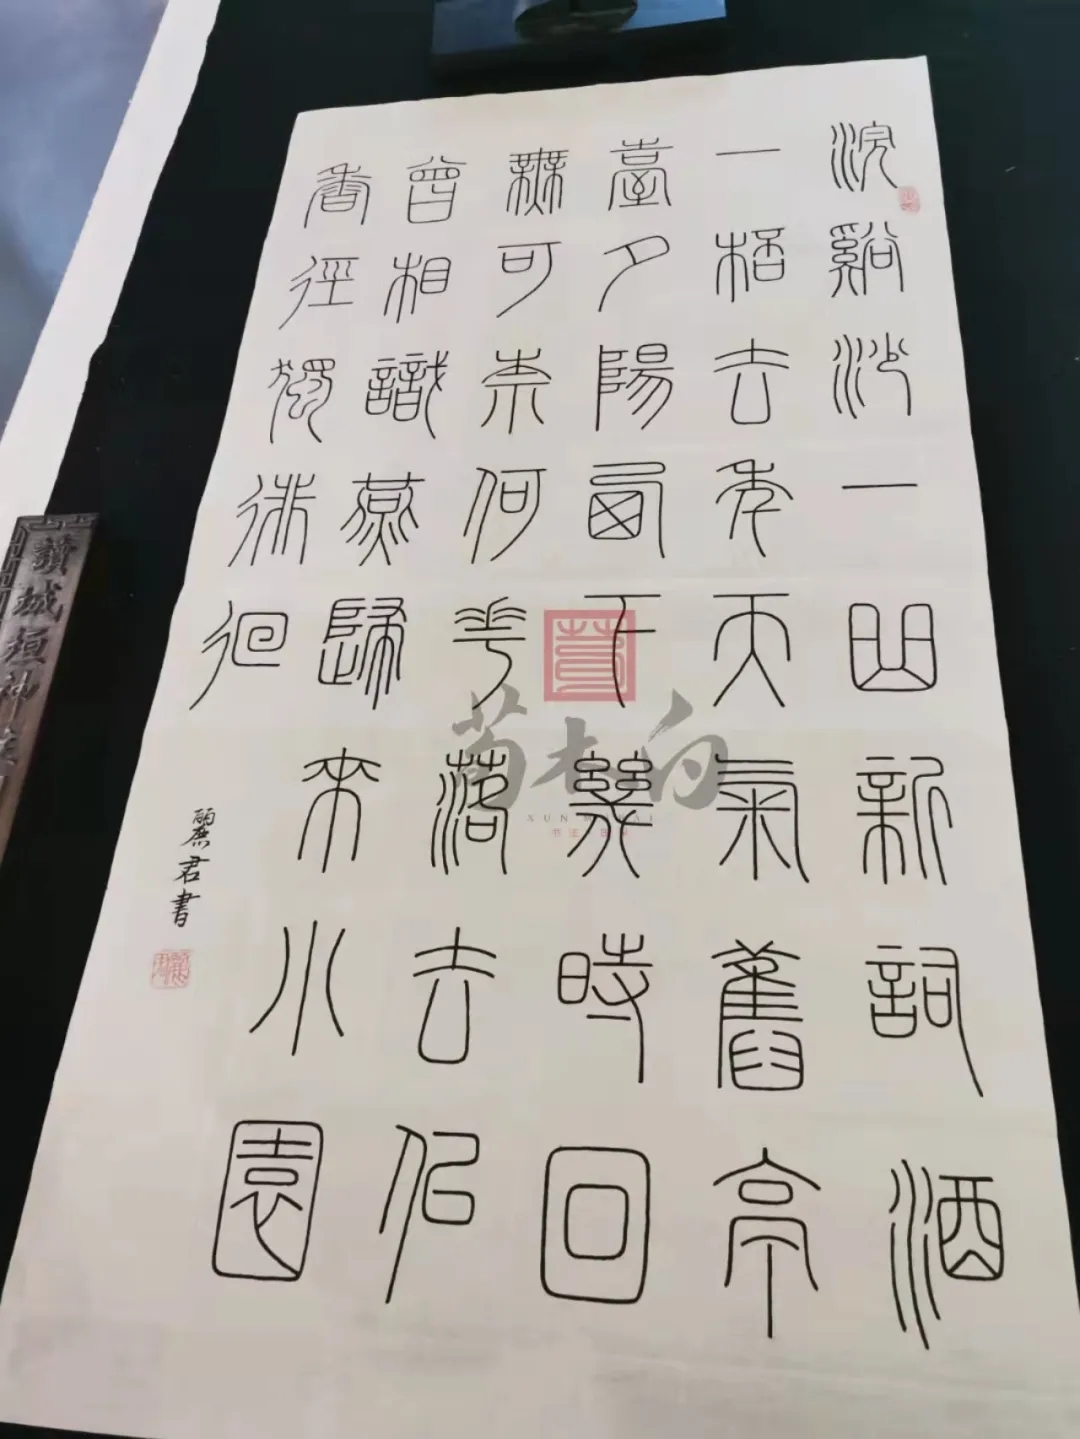 浣谿沙一曲新詞酒
一桮去年天氣舊亭
臺夕陽西下幾時回
無可奈何花落去似
曾相識燕歸來小園
香徑獨徘徊
麗君書
荀木白